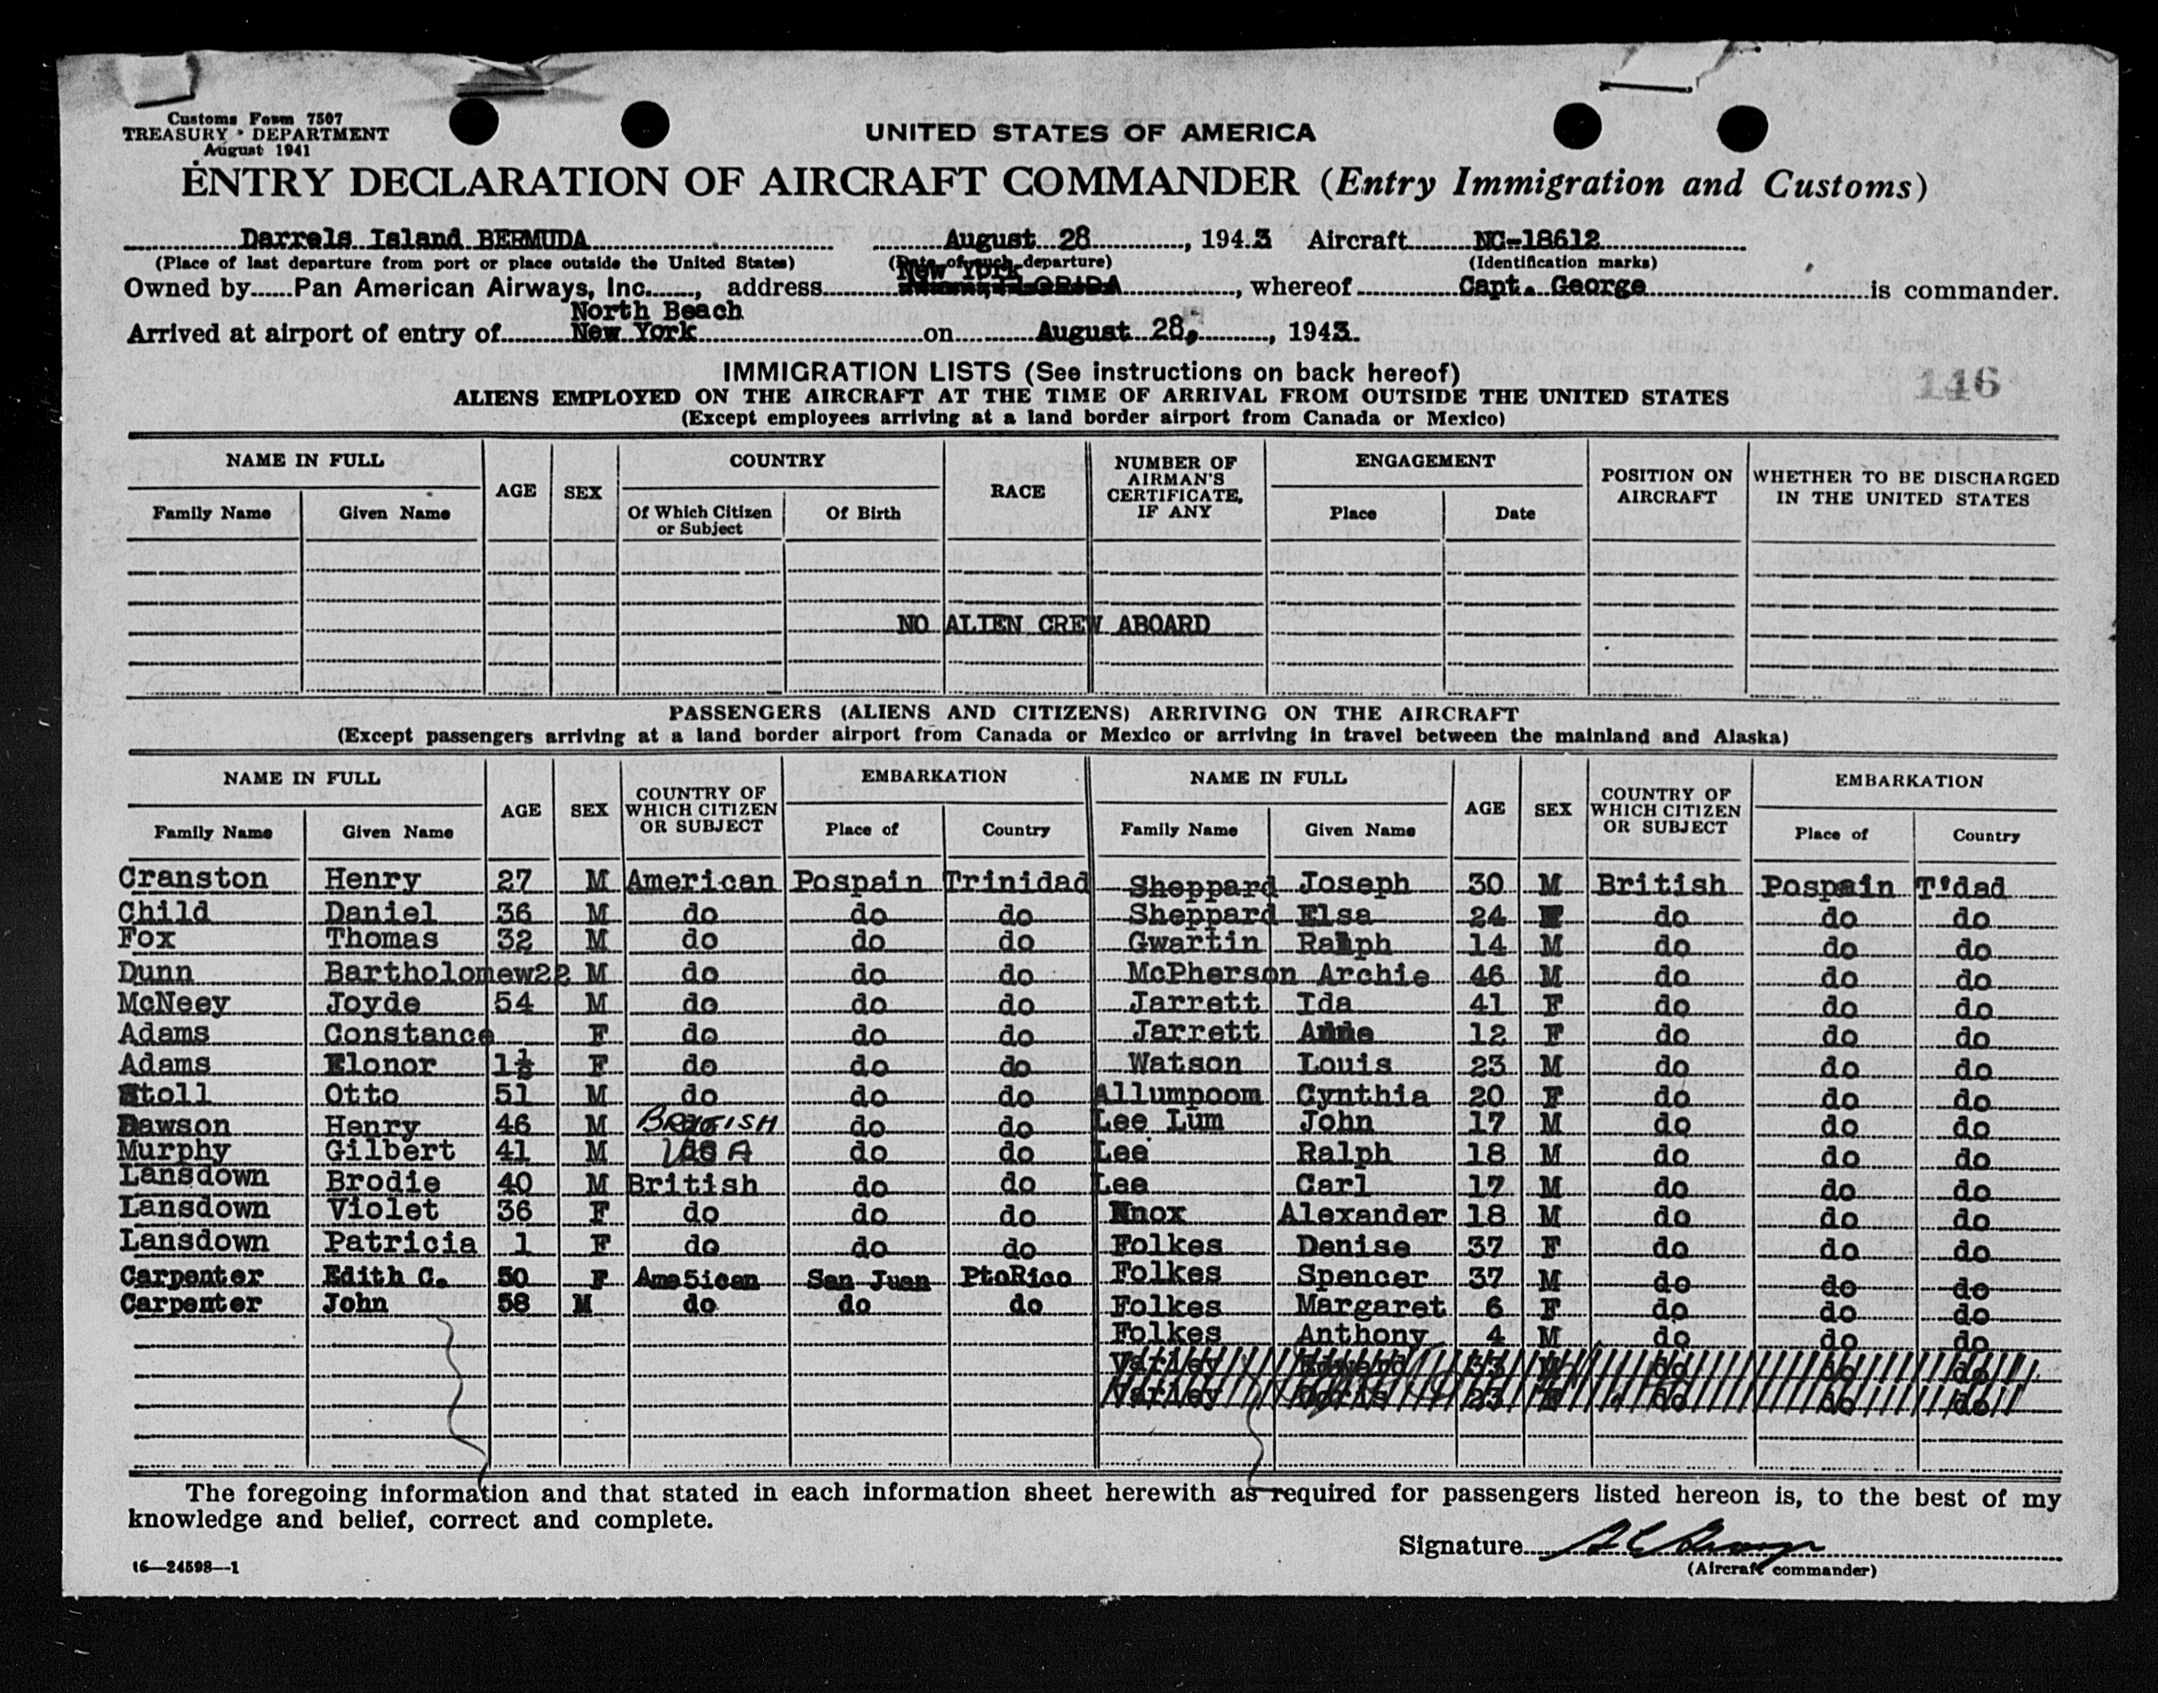 Customs Form 7507
TREASURY DEPARTMENT
August 1941
UNITED STATES OF AMERICA
ENTRY DECLARATION OF AIRCRAFT COMMANDER (Entry Immigration and Customs)
Darrels Island BERMUDA August 28, 1943 Aircraft NC-18612
(Place of last departure from port or place outside the United States) (Date of such departure) (Identification marks)
New York
Owned by Pan American Airways, Inc., address FLORIDA, whereof Capt. George is commander.
North Beach
Arrived at airport of entry of New York on August 28, 1943.
IMMIGRATION LISTS (See instructions on back hereof)
146
ALIENS EMPLOYED ON THE AIRCRAFT AT THE TIME OF ARRIVAL FROM OUTSIDE THE UNITED STATES
(Except employees arriving at a land border airport from Canada or Mexico)
NAME IN FULL AGE SEX COUNTRY RACE NUMBER OF AIRMAN'S CERTIFICATE, IF ANY ENGAGEMENT POSITION ON AIRCRAFT WHETHER TO BE DISCHARGED IN THE UNITED STATES
Family Name Given Name Of Which Citizen or Subject Of Birth Place Date
NO ALIEN CREW ABOARD
PASSENGERS (ALIENS AND CITIZENS) ARRIVING ON THE AIRCRAFT
(Except passengers arriving at a land border airport from Canada or Mexico or arriving in travel between the mainland and Alaska)
NAME IN FULL AGE SEX COUNTRY OF WHICH CITIZEN OR SUBJECT EMBARKATION NAME IN FULL AGE SEX COUNTRY OF WHICH CITIZEN OR SUBJECT EMBARKATION
Family Name Given Name Place of Country Family Name Given Name Place of Country
Cranston Henry 27 M American Pospain Trinidad Sheppard Joseph 30 M British Pospain T'dad
Child Daniel 36 M do do do Sheppard Elsa 24 do do do
Fox Thomas 32 M do do do Gwartin Ralph 14 M do do do
Dunn Bartholomew 22 M do do do McPherson Archie 46 M do do do
McNeey Joyde 54 M do do do Jarrett Ida 41 F do do do
Adams Constance F do do do Jarrett Anne 12 F do do do
Adams Elonor 1½ F do do do Watson Louis 23 M do do do
Stoll Otto 51 M do do do Allumpoom Cynthia 20 F do do do
Dawson Henry 46 M BRITISH do do Lee Lum John 17 M do do do
Murphy Gilbert 41 M USA do do Lee Ralph 18 M do do do
Lansdown Brodie 40 M British do do Lee Carl 17 M do do do
Lansdown Violet 36 F do do do Knox Alexander 18 M do do do
Lansdown Patricia 1 F do do do Folkes Denise 37 F do do do
Carpenter Edith G. 50 F Ame5ican San Juan PtoRico Folkes Spencer 37 M do do do
Carpenter John 58 M do do do Folkes Margaret 6 F do do do
Folkes Anthony 4 M do do do
Varley Edward 33 M do do do
Varley Doris 23 F do do do
The foregoing information and that stated in each information sheet herewith as required for passengers listed hereon is, to the best of my
knowledge and belief, correct and complete.
Signature
(Aircraft commander)
16—24598—1